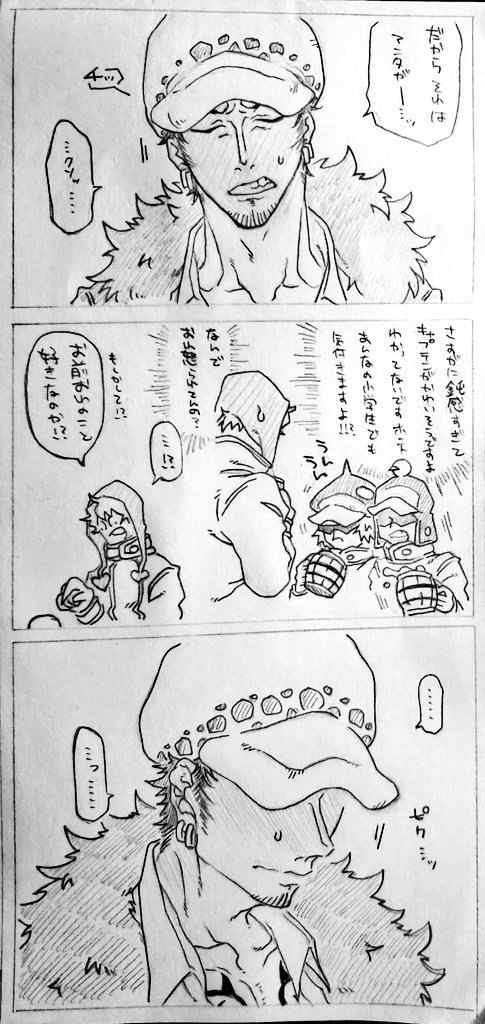 だから それは
アンタがーーッ
チッ
…クソッ……
さすがに鈍感すぎて
キャプテンがかわいそうですよ
わかってないですホント
あんなの小学生でも
気付きますよ!!?
うんうん
なんで
おれ怒られてんの?
…!?
もしかして!?
お前おれのこと
好きなのか!?
……
ピク…ッ
…っ……